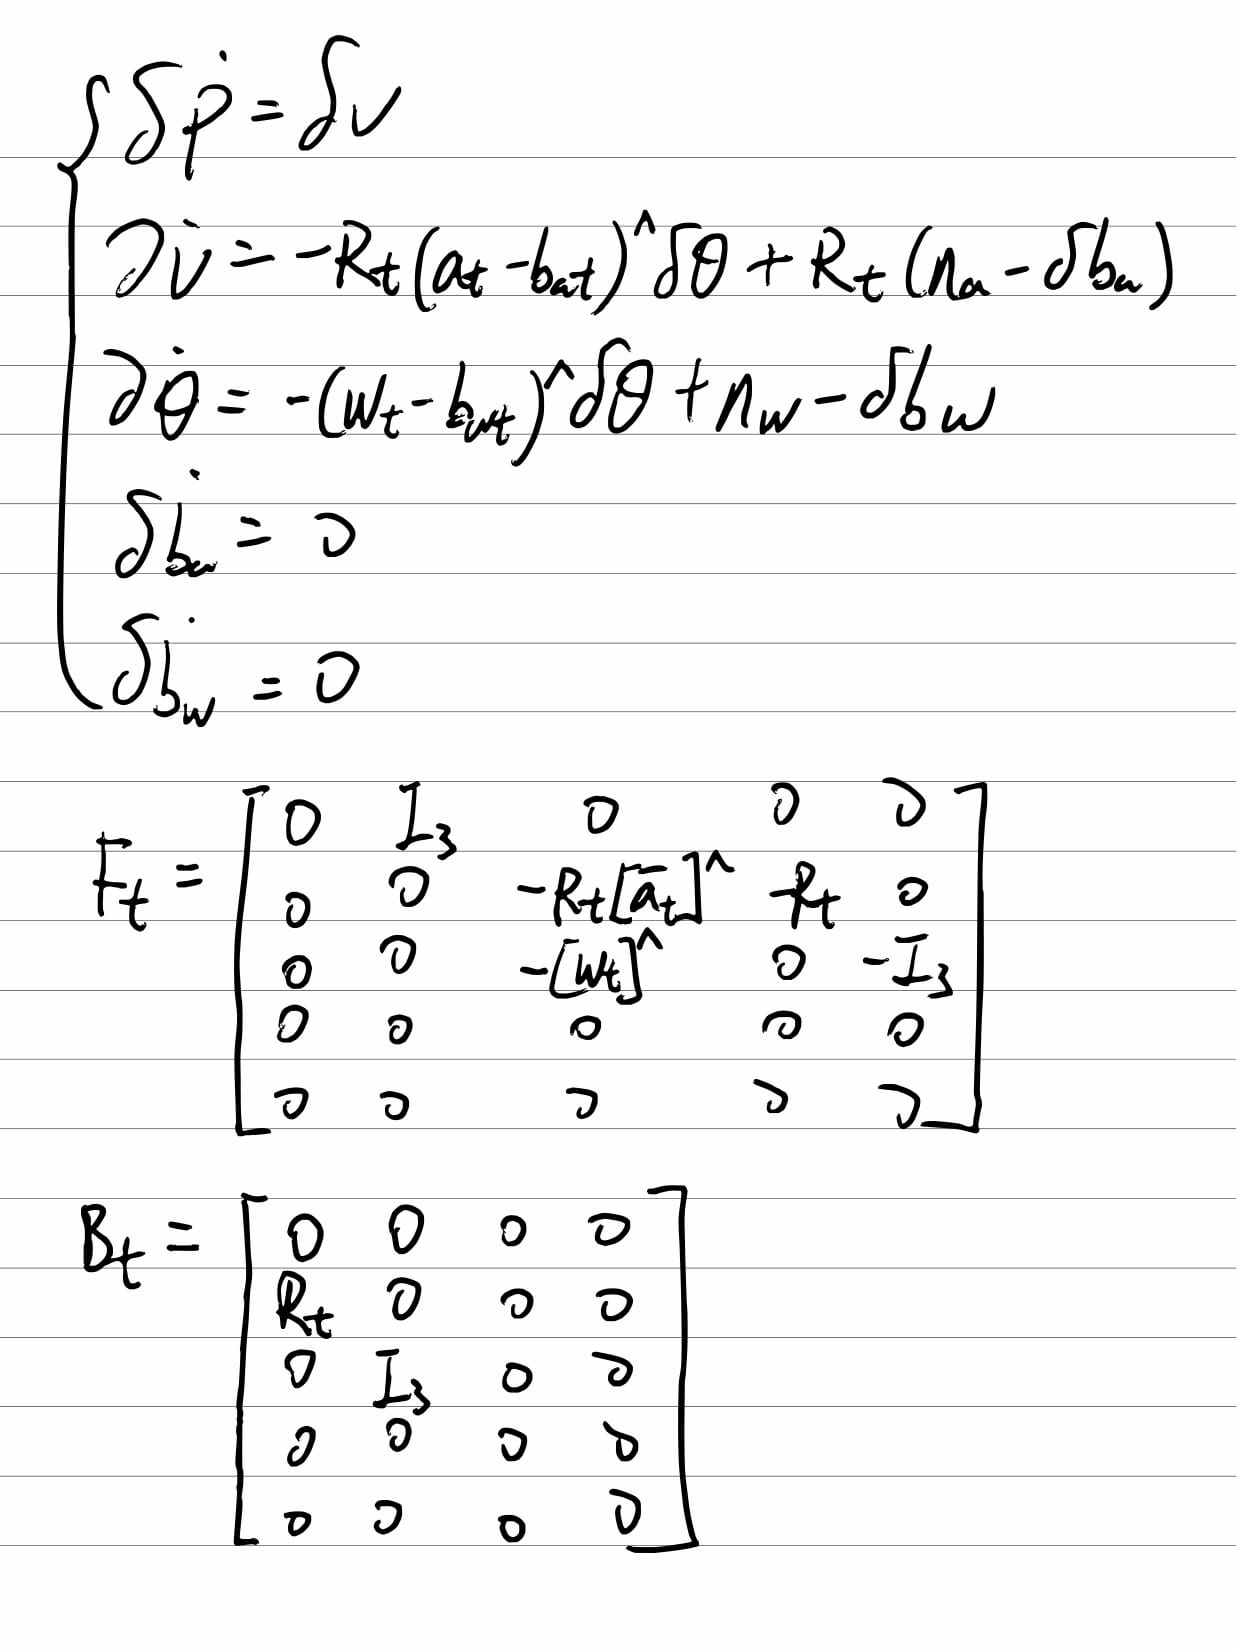 δṗ = δv
δv̇ = -Rₜ(aₜ - bₐₜ)^δθ + Rₜ(nₐ - δbₐ)
δθ̇ = -(wₜ - b_wt)^δθ + n_w - δb_w
δḃₐ = 0
δḃ_w = 0
Fₜ = [ 0 I₃ 0 0 0
0 0 -Rₜ[āₜ]^ -Rₜ 0
0 0 -[wₜ]^ 0 -I₃
0 0 0 0 0
0 0 0 0 0 ]
Bₜ = [ 0 0 0 0
Rₜ 0 0 0
0 I₃ 0 0
0 0 0 0
0 0 0 0 ]